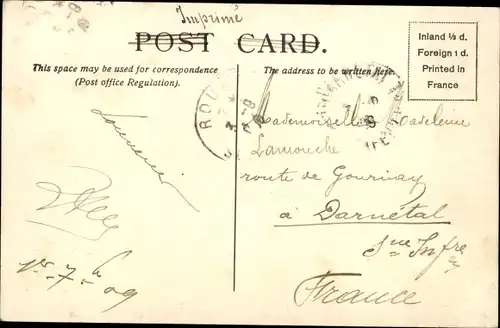 Imprimé
POST CARD.
Inland ½ d.
Foreign 1 d.
Printed in
France
This space may be used for correspondence
(Post office Regulation).
The address to be written here
ROU
Mademoiselle Madeleine
Lamouche
route de Gournay
à Darnétal
Sne Infre
France
Souvenir
1er-7-09